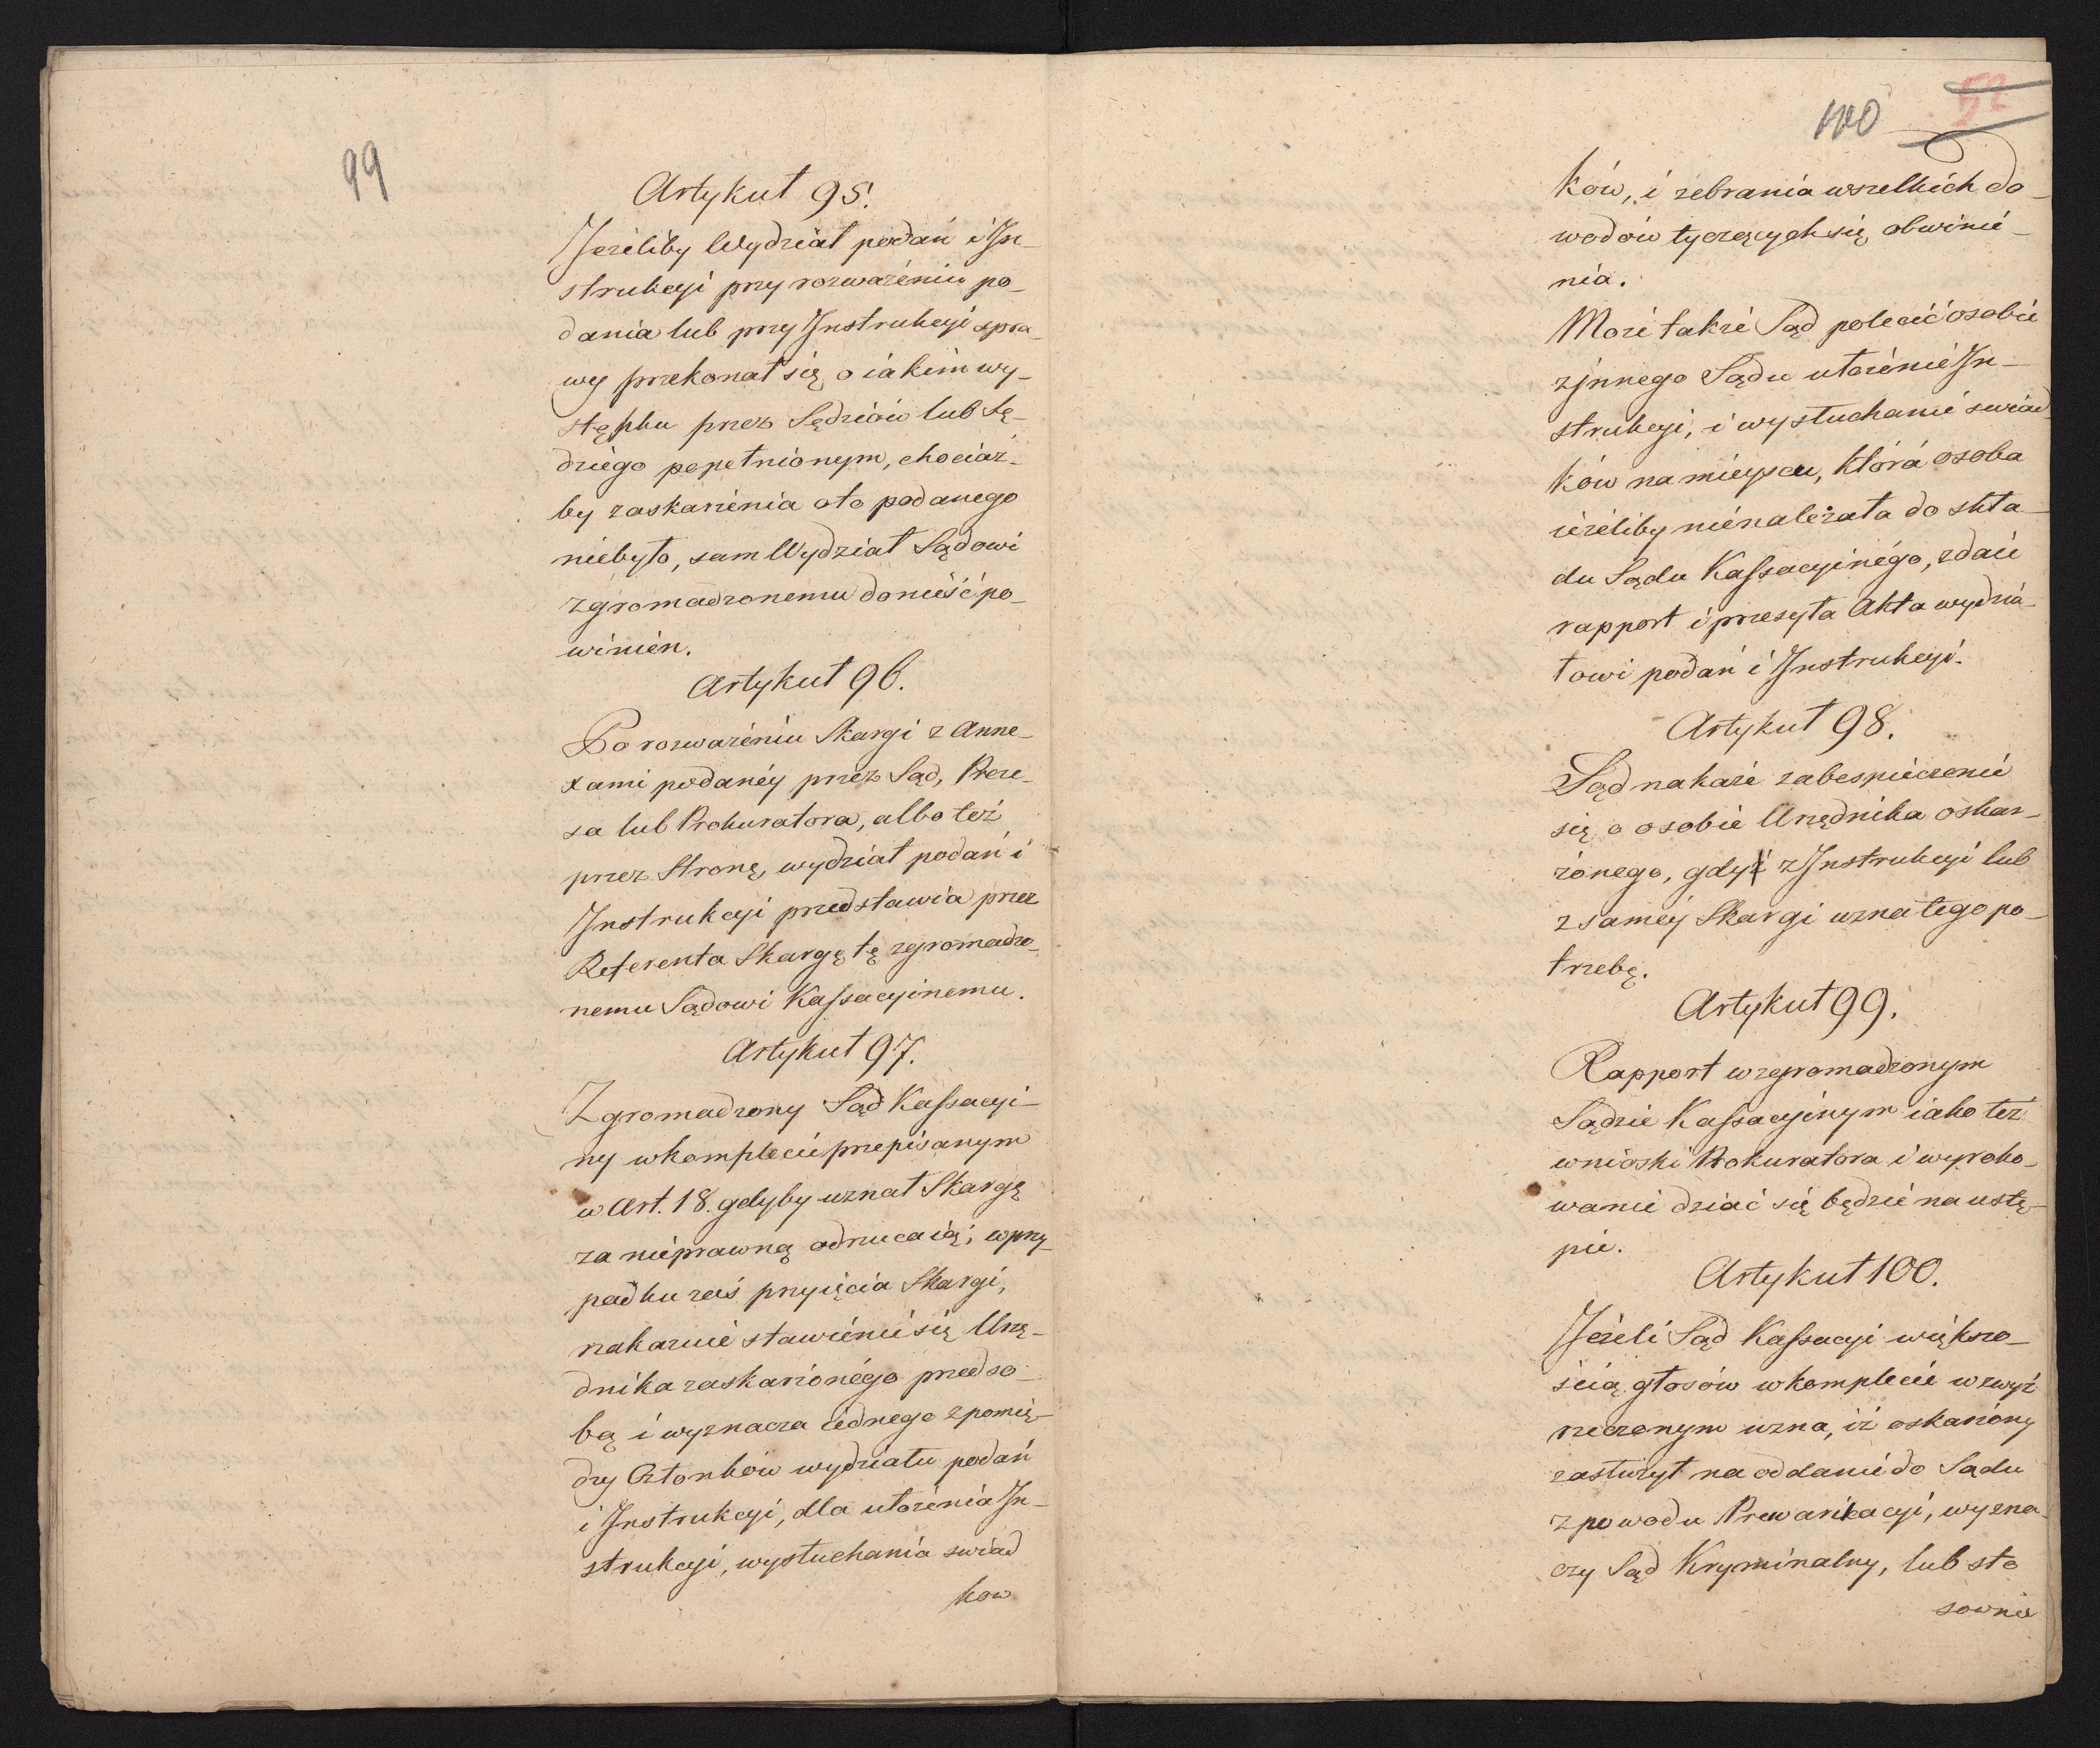 99
Artykuł 95.
Jeżeliby Wydział podań i In-
strukcyi przy rozważeniu po-
dania lub przy Instrukcyi spra-
wy przekonał się o iakim wy-
stępku przez Sędziów lub Sę-
dziego popełnionym, chociaż-
by zaskarżenia oto podanego
niebyło, sam Wydział Sądowi
zgromadzonemu donieść po-
winien.
Artykuł 96.
Po rozważeniu Skargi z Anne-
xami podanéy przez Sąd, Preze-
sa lub Prokuratora, albo też
przez Stronę, wydział podań i
Instrukcyi przedstawia przez
Referenta Skargę tę zgromadzo-
nemu Sądowi Kassacyinemu.
Artykuł 97.
Zgromadzony Sąd Kassacyi-
ny w komplecie przepisanym
w Art. 18. gdyby uznał Skargę
za nieprawną odrzuca ią; w przy-
padku zaś przyięcia Skargi,
nakazuie stawienie się Urzę-
dnika zaskarżonégo przed so-
bą i wyznacza iednego z pomię-
dzy Członków wydziału podań
i Instrukcyi, dla ułożenia In-
strukcyi, wysłuchania świad
kow
100
52
ków, i zebrania wszelkich do-
wodów tyczących się obwinie-
nia.
Może także Sąd polecić osobie
z innego Sądu ułożenie In-
strukcyi, i wysłuchanie świad-
ków na mieyscu, która osoba
ieżeliby nienależała do skła-
du Sądu Kassacyinégo, zdaie
rapport i przesyła Akta wydzia-
łowi podań i Instrukcyi.
Artykuł 98.
Sąd nakaże zabespieczenie
się o osobie Urzędnika oskar-
żonego, gdy z Instrukcyi lub
z saméy Skargi uzna tego po-
trzebę.
Artykuł 99.
Rapport w zgromadzonym
Sądzie Kassacyinym iako też
wnioski Prokuratora i wyroko-
wanie dziać się będzie na ustę-
pie.
Artykuł 100.
Jeżeli Sąd Kassacyi większo-
ścią głosów w komplecie wzwyż
rzeczonym uzna, iż oskarżony
zasłużył na oddanie do Sądu
z powodu Prewarikacyi, wyzna-
czy Sąd Kryminalny, lub sto
sownie